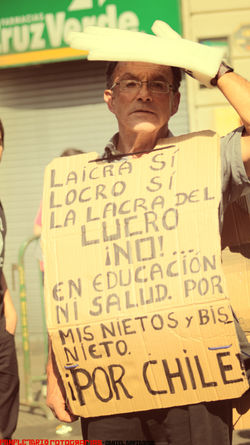 FARMACIAS
Cruz Verde
LAICRA SÍ
LOCRO SÍ
LA LACRA DEL
LUCRO
¡NO!...
EN EDUCACIÓN
NI SALUD. POR
MIS NIETOS Y BIS
NIETO.
¡¡POR CHILE!